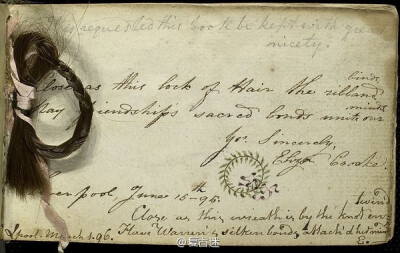 It is requested this book be kept with great
nicety.
Close as this lock of Hair the ribband binds
May friendships sacred bonds unite our minds
Yrs Sincerely,
Eliza Cooke.
Liverpool, June 15th - 95.
Close as this wreath is by the knot entwin'd
Have Warren's silken bonds attach'd her mind
E.
Lpool March 1. 96.
@复古迷